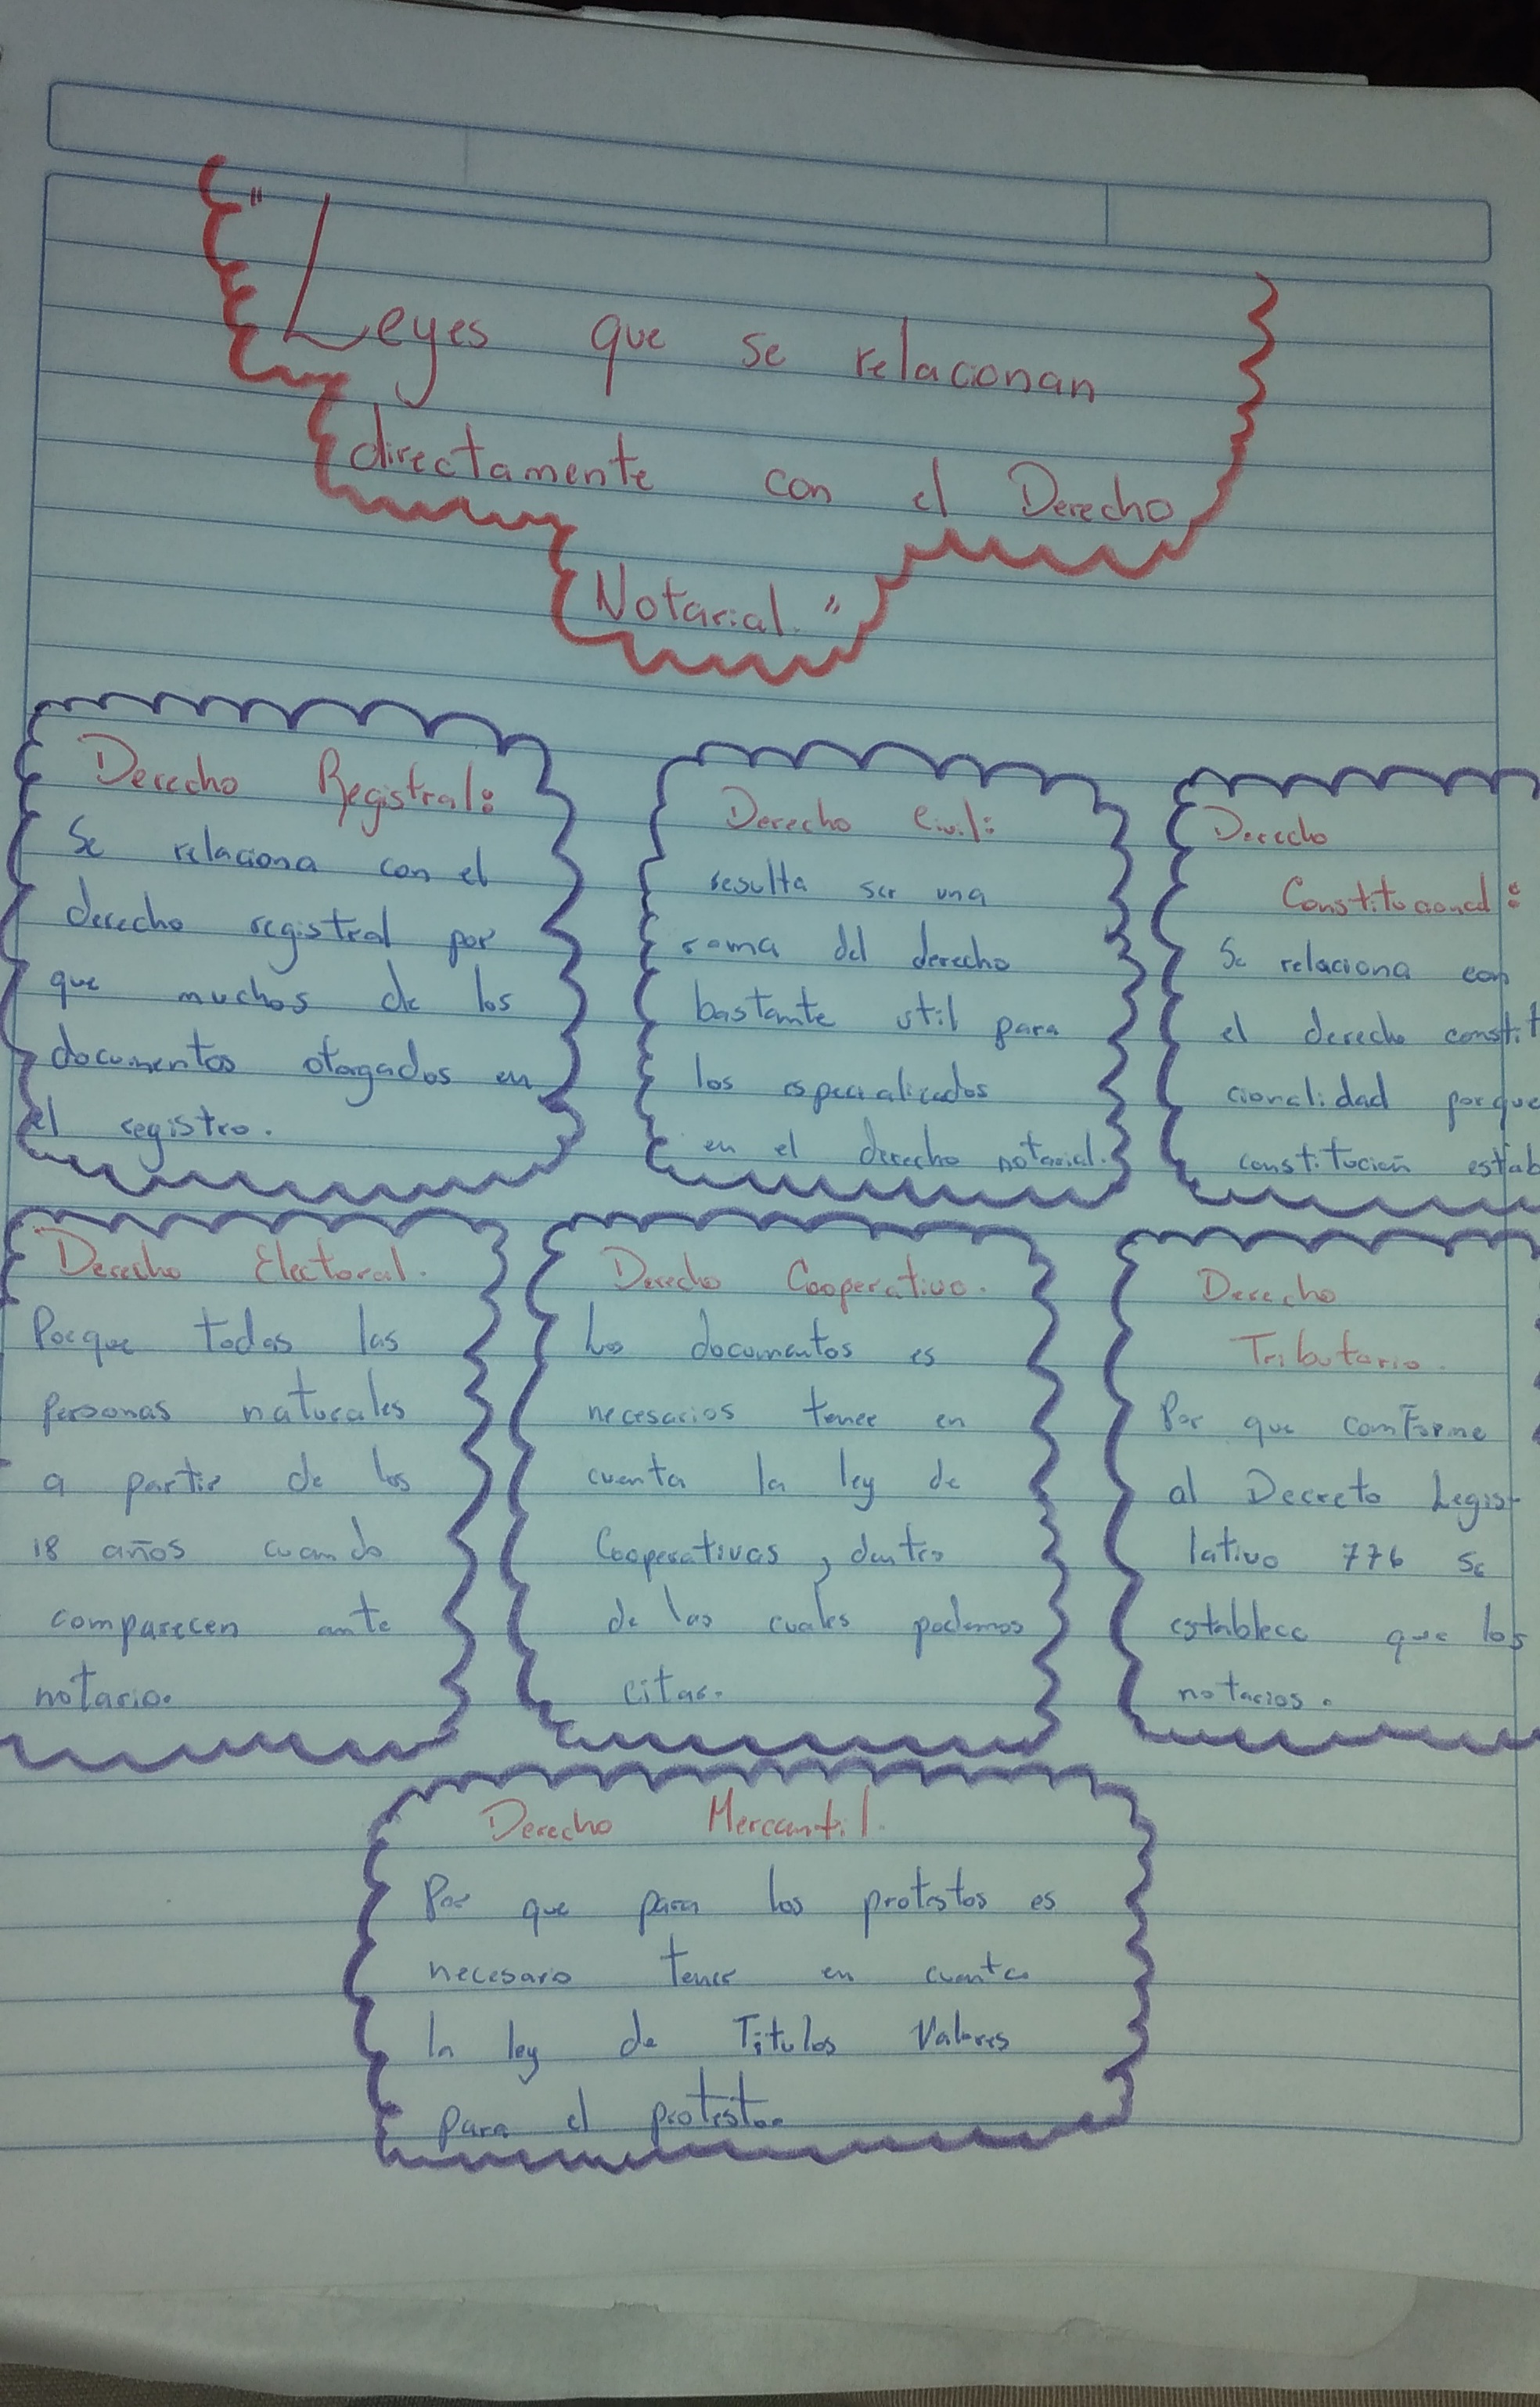 "Leyes que se relacionan
directamente con el Derecho
Notarial."
Derecho Registral:
Se relaciona con el
derecho registral por
que muchos de los
documentos otorgados en
el registro.
Derecho Civil:
resulta ser una
rama del derecho
bastante util para
los especializados
en el derecho notarial.
Derecho
Constitucional:
Se relaciona con
el derecho constit
cionalidad porque
constitución estab
Derecho Electoral.
Porque todas las
personas naturales
a partir de los
18 años cuando
comparecen ante
notario.
Derecho Cooperativo.
Los documentos es
necesarios tener en
cuenta la ley de
Cooperativas, dentro
de las cuales podemos
citar.
Derecho
Tributario.
Por que comforme
al Decreto Legis-
lativo 776 se
establece que los
notarios.
Derecho Mercantil.
Por que para los protestos es
necesaro tener en cuenta
la ley de Titulos Valores
para el protesto.